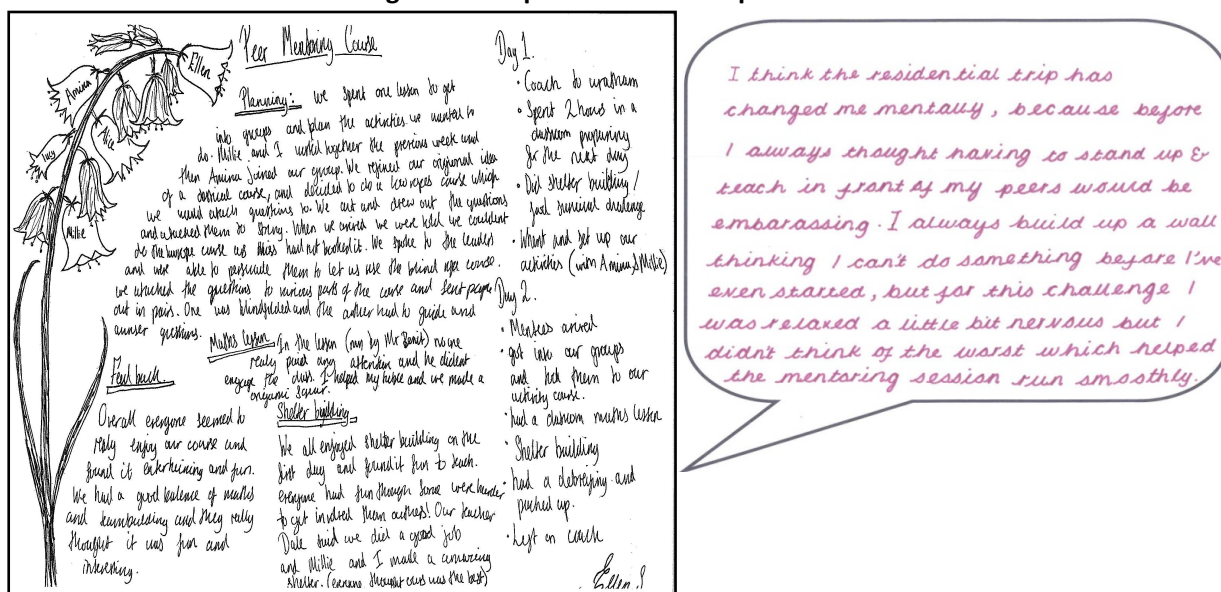 Peer Mentoring Course
Ellen
Amina
Alice
Lucy
Millie
Planning: we spent one lesson to get
into groups and plan the activities we wanted to
do. Millie and I worked together the previous week and
then Amina joined our group. We refined our origional idea
of a classical course, and decided to do a lowropes course which
we would attach questions to. We cut and drew out the questions
and attached them to string. When we arrived we were told we couldent
do the lowrope course as Miss had not booked it. We spoke to the leaders
and were able to persuade them to let us use the blind rope course.
we attached the questions to various parts of the course and sent people
out in pairs. One was blindfolded and the other had to guide and
answer questions.
Maths lesson In the lesson (run by Mr ) no one
realy paid any attention and he dident
engage the class. I helped my table and we made a
origami square.
Feed back.
Overall everyone seemed to
realy enjoy our course and
found it entertaining and fun.
We had a good balence of maths
and teambuilding and they really
thought it was fun and
interesting.
Shelter building
We all enjoyed shelter building on the
first day and found it fun to teach.
everyone had fun though some were harder
to get involved than others! Our teacher
Dale said we did a good job
and Millie and I made a amazing
shelter. (everyone thought ours was the best)
Day 1.
• Coach to wrotham
• Spent 2 hours in a
classroom preparing
for the next day
• Did shelter building /
food survival challenge
• Whent and set up our
activities (with Amina & Millie)
Day 2.
• Mentees arived
• got into our groups
and led them to our
activity course.
• had a classroom maths lesson
• Shelter building
• had a debreifing and
packed up.
• Left on coach
Ellen S
I think the residential trip has
changed me mentally, because before
I always thought having to stand up &
teach in front of my peers would be
embarassing. I always build up a wall
thinking I can't do something before I've
even started, but for this challenge I
was relaxed a little bit nervous but I
didn't think of the worst which helped
the mentoring session run smoothly.